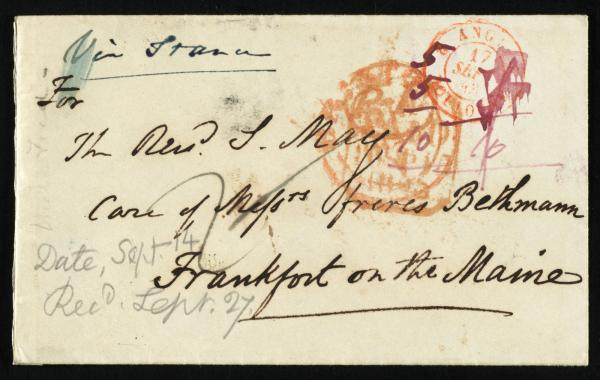 Via France
For
The Revd. S. May
Care of Messrs freres Bethmann
Frankfort on the Maine
Date, Sept. 14
Recd. Sept. 27.
5
5
10
10
ANG
17